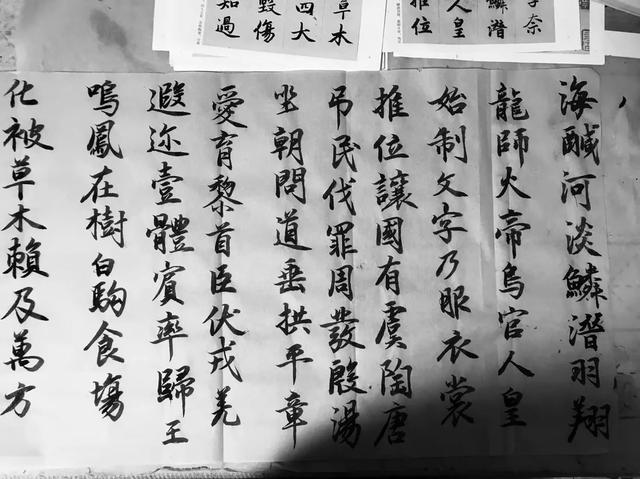 李奈
鱗潛
人皇
推位
草木
四大
毀傷
知過
海鹹河淡鱗潛羽翔
龍師火帝鳥官人皇
始制文字乃服衣裳
推位讓國有虞陶唐
吊民伐罪周發殷湯
坐朝問道垂拱平章
愛育黎首臣伏戎羌
遐迩壹體賓率歸王
鳴鳳在樹白駒食場
化被草木賴及萬方